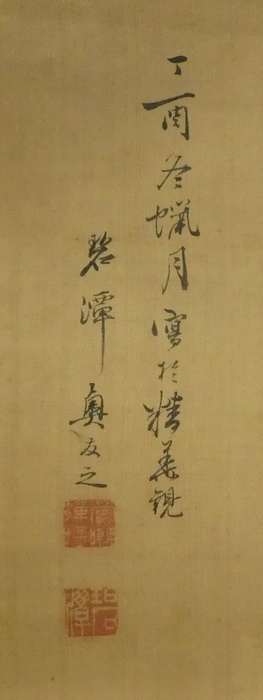 丁酉冬蠟月寫於精華観
碧潭友之